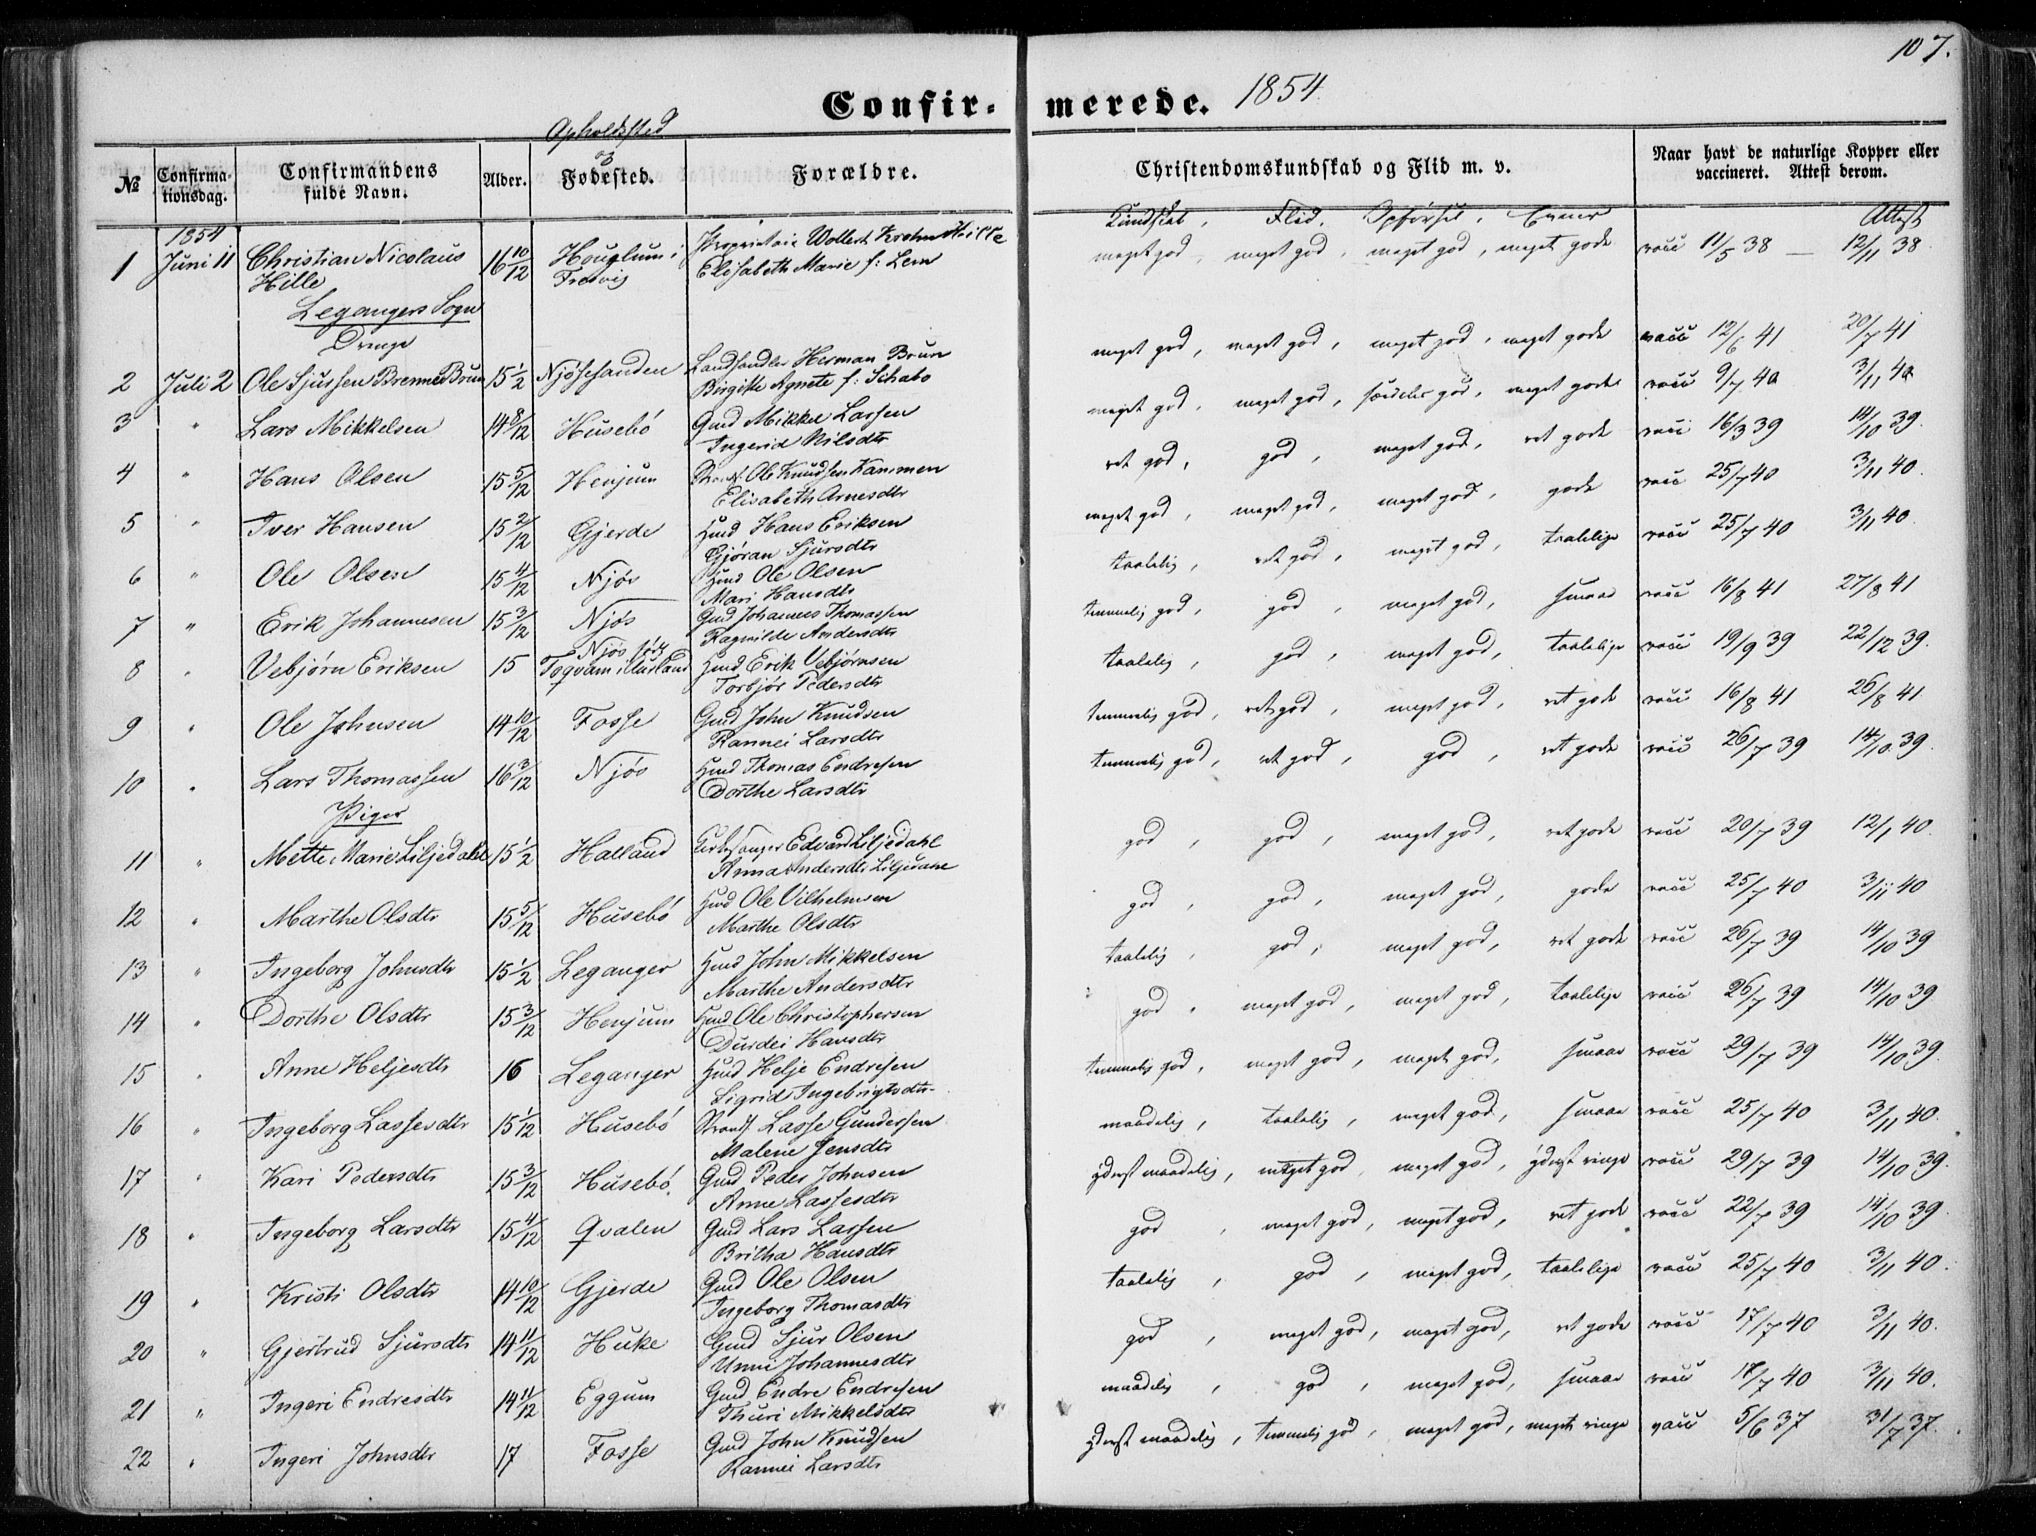 107.
Confirmerede. 1854.
Opholdssted og
№ Confirmationsdag. Confirmandens fulde Navn. Alder. Fødested. Forældre. Christendomskundskab og Flid m. v. Naar havt de naturlige Kopper eller vaccineret. Attest derom.
Kundskab, Flid, Opførsel, Evner Attest
1854
1 Juni 11 Christian Nicolaus Hille 16 10/12 Houglum i Fretvig Proprietair Wollert Krohn Hille Elisabeth Marie f: Lem meget god, meget god, meget god, meget gode vacc 11/5 38 — 12/11 38
Leganger Sogn
Drenge
2 Juli 2 Ole Sjurssen Brenner Brun 15 1/2 Njøsesanden Landhandler Herman Brun Birgitte Agnete f: Schabo meget god, meget god, meget god, meget gode vacc 12/6 41 20/7 41
3 " Lars Mikkelsen 14 8/12 Husebó Gmd Mikkel Lassen Ingerid Nilsdtr meget god, meget god, særdeles god, meget gode vacc 9/7 40 3/11 40
4 " Hans Olsen 15 5/12 Henjum Ole Knudsen Kammen Elisabeth Arnesdtr ret god, god, meget god, ret gode vacc 16/3 39 14/10 39.
5 " Iver Hansen 15 2/12 Gjerde Hmd Hans Eriksen Gjøran Sjursdtr meget god, meget god, meget god, gode vacc 25/7 40 3/11 40.
6 " Ole Olsen 15 4/12 Njøs Hmd Ole Olsen Mari Hansdtr taalelig, ret god, meget god, taalelige vacc 25/7 40 3/11 40.
7 " Erik Johannesen 15 3/12 Njøs Gmd Johannes Thomassen Ragnilde Andersdtr temmelig god, god, meget god, smaae vacc 16/8 41 27/8 41
8 " Vebjørn Eriksen 15 Njøs født Togvam i Aurland Hmd Erik Vebjørnsen Torbjør Pedersdtr taalelig, god, meget god, taalelige vacc 19/9 39 22/12 39.
9 " Ole Johnsen 14 10/12 Fosse Gmd John Knudsen Rannei Larsdtr temmelig god, ret god, meget god, ret gode vacc 16/8 41 26/8 41
10 " Lars Thomassen 16 3/12 Njøs Hmd Thomas Endresen Dorthe Larsdtr temmelig god, ret god, god, ret gode vacc 26/7 39 14/10 39.
Piger
11 " Mette Marie Liljedahl 15 1/2 Halland Kirkesanger Edvard Liljedahl Anna Andersdtr Liljedahl god, god, meget god, ret gode vacc 20/7 39 12/1 40.
12 " Marthe Olsdtr 15 5/12 Husebó Hmd Ole Vilhelmsen Marthe Olsdtr god, god, meget god, gode vacc 25/7 40 3/11 40
13 " Ingeborg Johnsdtr 15 1/2 Leganger Hmd John Mikkelsen Marthe Andersdtr taalelig, god, meget god, ret gode vacc 26/7 39 14/10 39
14 " Dorthe Olsdtr 15 3/12 Henjum Hmd Ole Christophersen Durdei Hansdtr god, meget god, meget god, taalelige vacc 26/7 39 14/10 39
15 " Anne Heljesdtr 16 Leganger Hmd Helje Endresen Sigrid Ingebrigtsdtr temmelig god, meget god, meget god, smaae vacc 29/7 39 14/10 39.
16 " Ingeborg Lassesdtr 15 1/12 Husebó Strands. Lasse Gundersen Malene Jensdtr maadelig, taalelig, meget god, smaae vacc 25/7 40 3/11 40.
17 " Kari Pedersdtr 15 3/12 Husebó. Gmd Peder Johnsen Anne Lassesdtr yderst maadelig, meget god, meget god, yderst ringe vacc 29/7 39 14/10 39.
18 " Ingeborg Larsdtr 15 4/12 Qvalen Gmd Lars Lassen Britha Hansdtr god, meget god, meget god, ret gode vacc 22/7 39 14/10 39.
19 " Kristi Olsdtr 14 10/12 Gjerde Gmd Ole Olsen Ingeborg Thomasdtr taalelig, god, meget god, taalelige vacc 25/7 40 3/11 40.
20 " Gjertrud Sjursdtr 14 11/12 Huke Gmd Sjur Olsen Unni Johannesdtr god, meget god, meget god, ret gode vacc 17/7 40 3/11 40.
21 " Ingeri Endresdtr 14 11/12 Eggum Gmd Endre Endresen Thuri Mikkelsdtr maadelig, god, meget god, smaae vacc 17/7 40 3/11 40.
22 " Ingeri Johnsdtr 17 Fosse Gmd John Knudsen Rannei Larsdtr yderst maadelig, temmelig god, meget god, meget ringe vacc 5/6 37 31/7 37.